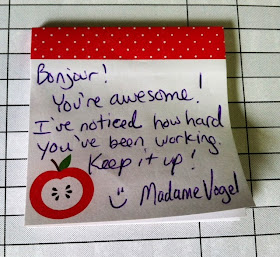 Bonjour!
You're awesome!
I've noticed how hard
you've been working.
Keep it up!
Madame Vogel